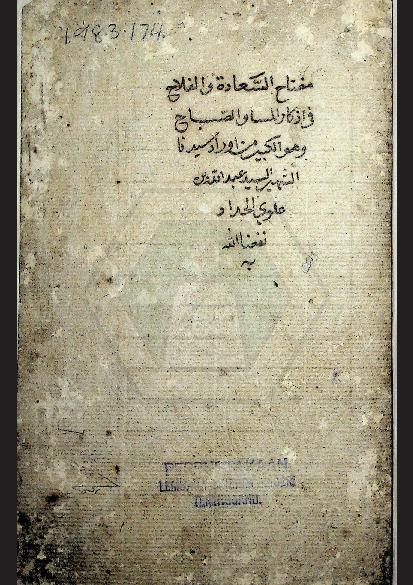 1983.174
مفتاح السَّعادة والفلاح
في اذكار المسا والصباح
وهو الكبير من اوراد سيدنا
الشهير السيد عبدالله بن
علوي الحداد
نفعنا الله
به